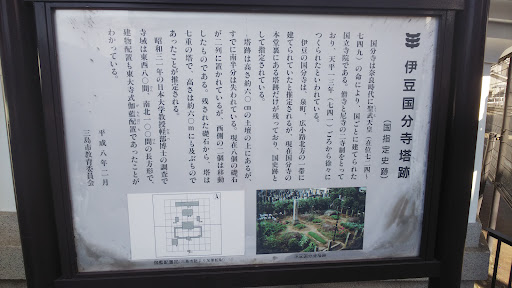 伊豆国分寺塔跡
(国指定史跡)
国分寺は奈良時代に聖武天皇(在位七二四~
七四九)の命により、国ごとに建てられた
国立寺院である。僧寺と尼寺の二寺制をとって
おり、天平一三年(七四一)ごろから徐々に
つくられたといわれている。
伊豆の国分寺は、泉町、広小路北方の一帯に
建てられていたと推定されるが、現在国分寺の
本堂裏にある塔跡だけが残っており、国史跡と
して指定されている。
塔跡は高さ約六〇㎝の土壇の上にあるが、
すでに南半分は失われている。現在八個の礎石
が二列に置かれているが、西側の二個は移動
したものである。残された礎石から、塔は
七重の塔で、高さは約六〇mにも及ぶもので
あったことが推定される。
昭和三一年の日本大学教授軽部博士の調査で
寺域は東西八〇間、南北一〇〇間の長方形で、
建物配置も東大寺式伽藍配置であったことが
わかっている。
平成八年二月
三島市教育委員会